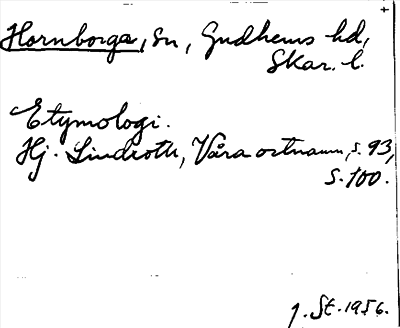 Hornborga, sn, Gudhems hd,
Skar. l.
Etymologi.
Hj. Lindroth, Våra ortnamn, s. 93,
s. 100.
J. St. 1956.